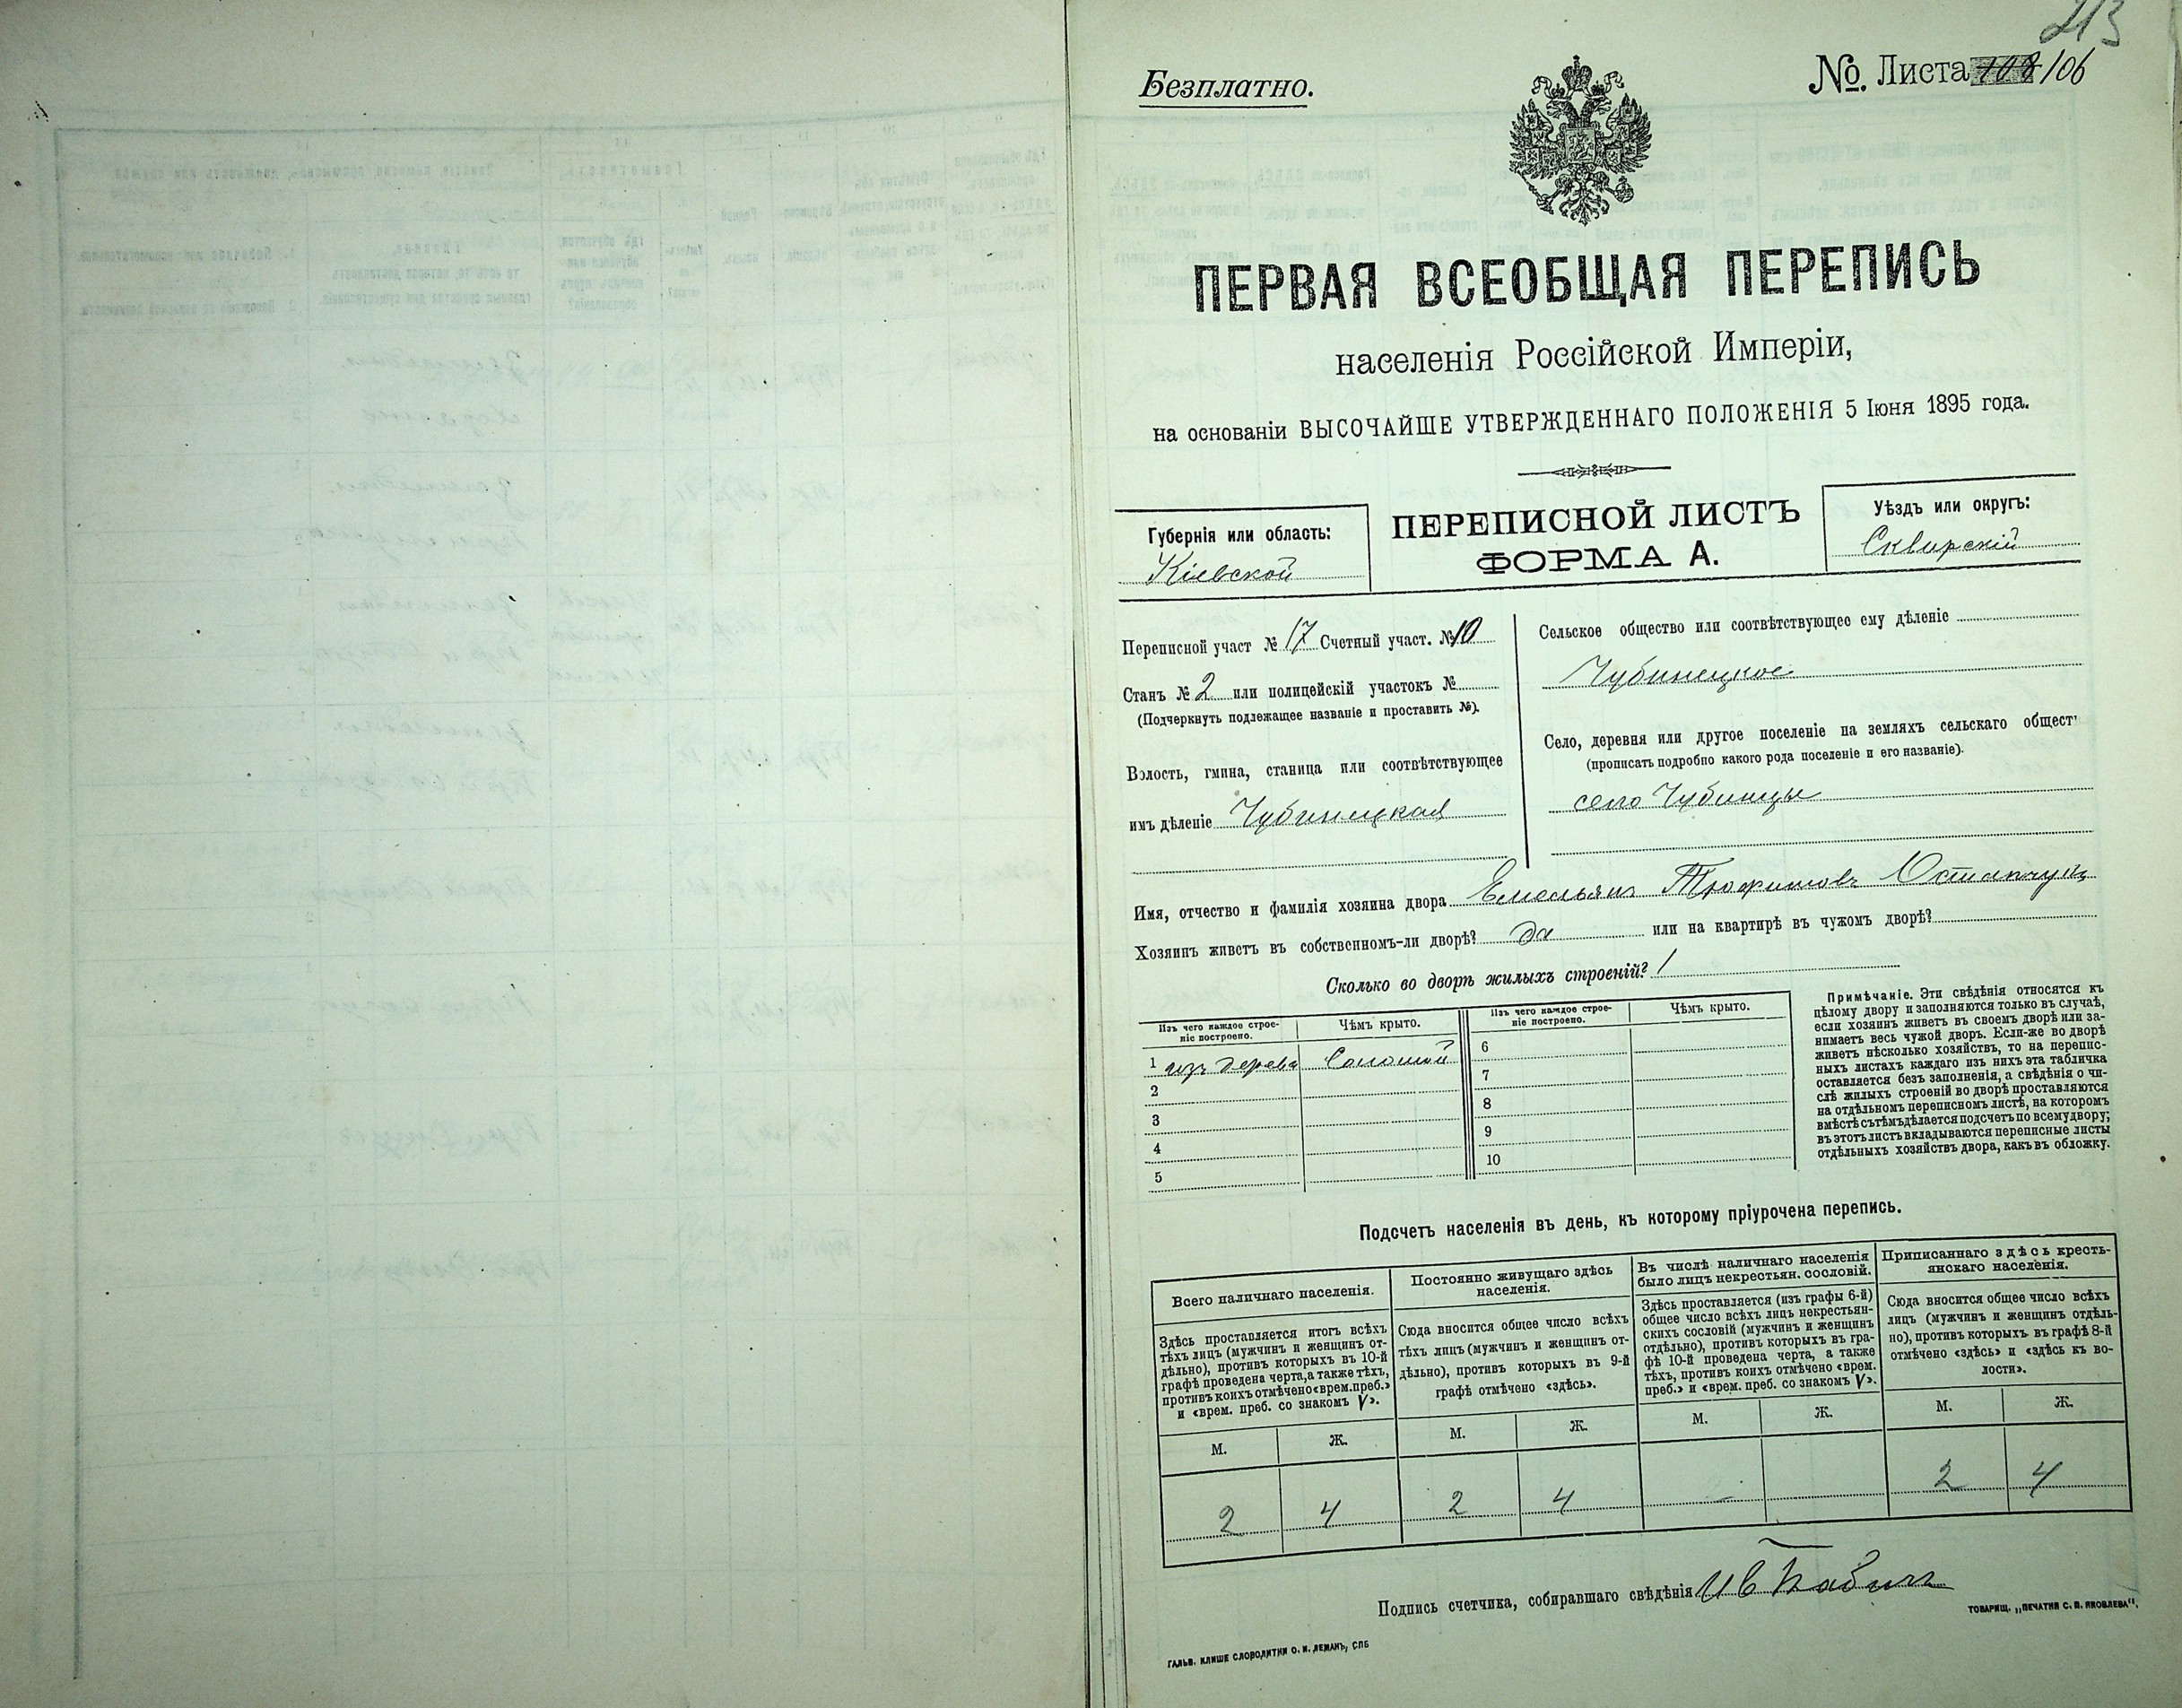 213
Безплатно.
№. Листа 108 106
ПЕРВАЯ ВСЕОБЩАЯ ПЕРЕПИСЬ
населенія Россійской Имперіи,
на основаніи ВЫСОЧАЙШЕ УТВЕРЖДЕННАГО ПОЛОЖЕНІЯ 5 Іюня 1895 года.
Губернія или область:
Кіевской
ПЕРЕПИСНОЙ ЛИСТЪ
ФОРМА А.
Уѣздъ или округъ:
Сквирскій
Переписной участ № 17 Счетный участ. № 10
Станъ № 2 или полицейскій участокъ №
(Подчеркнуть подлежащее названіе и проставить №).
Волость, гмина, станица или соотвѣтствующее
имъ дѣленіе Чубинецкая
Сельское общество или соотвѣтствующее ему дѣленіе
Чубинецкое
Село, деревня или другое поселеніе на земляхъ сельскаго общест
(прописать подробно какого рода поселеніе и его названіе).
село Чубинцы
Имя, отчество и фамилія хозяина двора Емельянъ Трофимовъ Остапчукъ
Хозяинъ живетъ въ собственномъ-ли дворѣ? да или на квартирѣ въ чужомъ дворѣ?
Сколько во дворѣ жилыхъ строеній? 1
Изъ чего каждое строе-
ніе построено.
Чѣмъ крыто.
Изъ чего каждое строе-
ніе построено.
Чѣмъ крыто.
1 изъ дерева Соломой 6
2 7
3 8
4 9
5 10
Примѣчаніе. Эти свѣдѣнія относятся къ
цѣлому двору и заполняются только въ случаѣ,
если хозяинъ живетъ въ своемъ дворѣ или за-
нимаетъ весь чужой дворъ. Если-же во дворѣ
живетъ нѣсколько хозяйствъ, то на перепис-
ныхъ листахъ каждаго изъ нихъ эта табличка
оставляется безъ заполненія, а свѣдѣнія о чи-
слѣ жилыхъ строеній во дворѣ проставляются
на отдѣльномъ переписномъ листѣ, на которомъ
вмѣстѣ съ тѣмъ дѣлается подсчетъ по всему двору;
въ этотъ листъ вкладываются переписные листы
отдѣльныхъ хозяйствъ двора, какъ въ обложку.
Подсчетъ населенія въ день, къ которому пріурочена перепись.
Всего наличнаго населенія.
Здѣсь проставляется итогъ всѣхъ
тѣхъ лицъ (мужчинъ и женщинъ от-
дѣльно), противъ которыхъ въ 10-й
графѣ проведена черта, а также тѣхъ,
противъ коихъ отмѣчено «врем. преб.»
и «врем. преб. со знакомъ V».
М. Ж.
2 4
Постоянно живущаго здѣсь
населенія.
Сюда вносится общее число всѣхъ
тѣхъ лицъ (мужчинъ и женщинъ от-
дѣльно), противъ которыхъ въ 9-й
графѣ отмѣчено «здѣсь».
М. Ж.
2 4
Въ числѣ наличнаго населенія
было лицъ некрестьян. сословій.
Здѣсь проставляется (изъ графы 6-й)
общее число всѣхъ лицъ некрестьян-
скихъ сословій (мужчинъ и женщинъ
отдѣльно), противъ которыхъ въ гра-
фѣ 10-й проведена черта, а также
тѣхъ, противъ коихъ отмѣчено «врем.
преб.» и «врем. преб. со знакомъ V».
М. Ж.
Приписаннаго здѣсь кресть-
янскаго населенія.
Сюда вносится общее число всѣхъ
лицъ (мужчинъ и женщинъ отдѣль-
но), противъ которыхъ въ графѣ 8-й
отмѣчено «здѣсь» и «здѣсь къ во-
лости».
М. Ж.
2 4
Подпись счетчика, собиравшаго свѣдѣнія
ГАЛЬВ. КЛИШЕ СЛОВОЛИТНИ О. И. ЛЕМАНЪ, СПБ
ТОВАРИЩ. „ПЕЧАТНИ С. П. ЯКОВЛЕВА“.